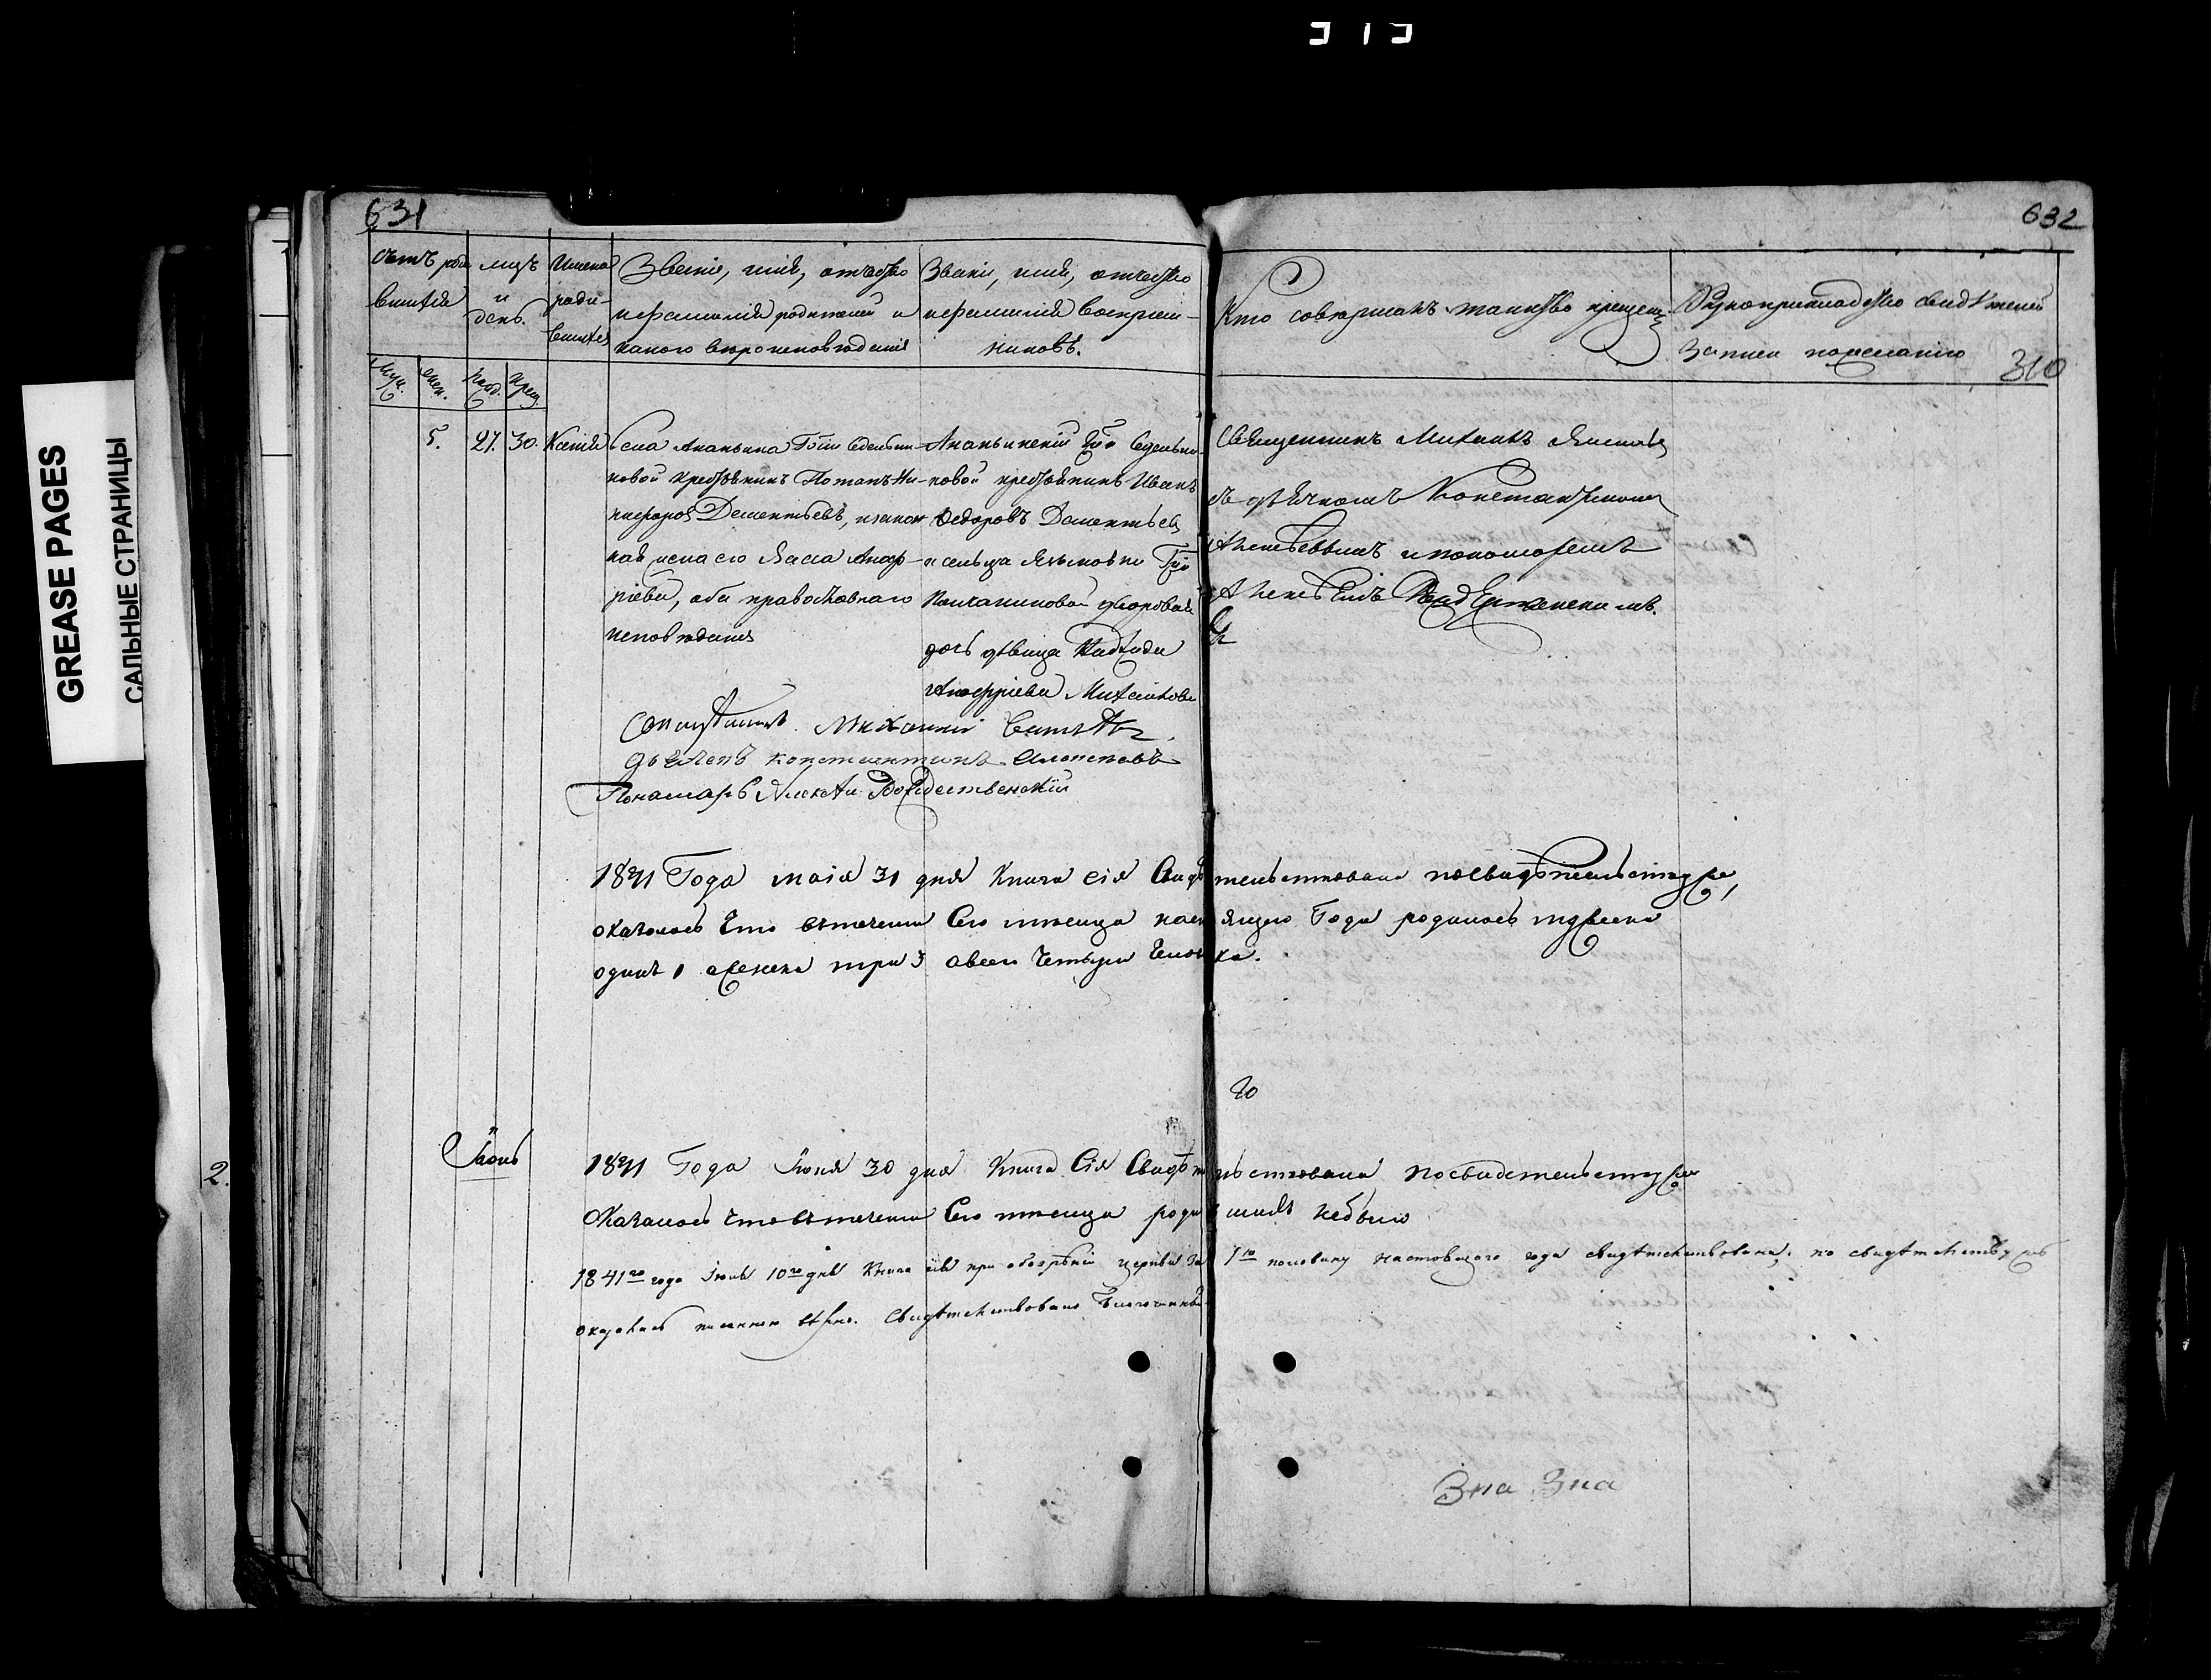 GREASE PAGES
САЛЬНЫЕ СТРАНИЦЫ
631
632
310
Счетъ роди
вшихся
мцъ
и
день.
Имена
роди-
вшихся
Званіе, имя, отчество
и фамилія родителей и
какого вероисповеданія
Званіе, имя, отчество
и фамилія воспріем-
никовъ.
Кто совершалъ таинство крещенія
Рукоприкладство свидетелей
записи по желанію
муж.
жен.
рожд.
крещ.
5.
27.
30.
Ксенія
села Ананьина Гжи Седельни-
ковой крестьянинъ Потапъ Ни-
кифоровъ Дементьевъ, и закон
ная жена его Васса Андр-
ріева, оба православнаго
исповеданія
Ананьинскій Гжи Седельни-
ковой крестьянинъ Иванъ
Федоровъ Дементьевъ
и сельца Гжи
дворовая
дочь девица
Михайлова
Священникъ Михаилъ
съ дьячкомъ Константиномъ
Алексеевымъ и пономаремъ
Алексеемъ Рождественскимъ.
Священникъ Михаилъ
Дьячекъ Константинъ Алексеевъ
Пономарь Алексей Рождественскій
1841 Года маія 31 дня Книга сія Свидетельствована по свидетельству же,
оказалось что въ теченіи Сего месяца настоящаго Года родилось мужеска
одинъ 1 женска три 3 а всего Четыре Человека.
го
Іюнь
1841 Года Іюня 30 дня Книга Сія Свидетельствована По свидетельству же
Оказалось что въ теченіи Сего месяца родившихся небыло
1841го года Іюля 10го дня Книга сія при обозреніи церкви за 1ю половину настоящаго года свидетельствована, по свидетельству
оказалась писанною верно. Свидетельствовалъ Благочинный
Зна Зна
2.